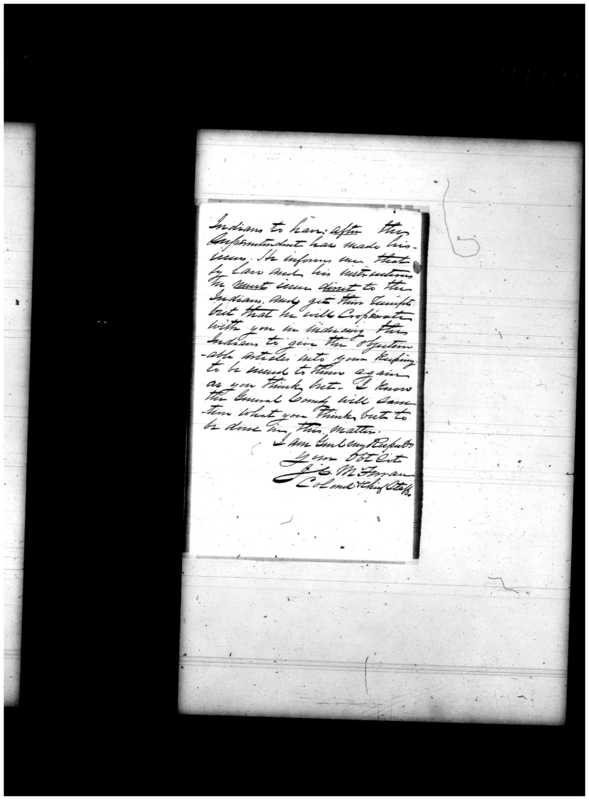 Indians to have; after the
Superintendent has made his
issue. He informs me that
by Law and his instructions
he must issue direct to the
Indians, and get their receipt
but that he will Cooperate
with you in inducing the
Indians to give the objection
-able articles into your keeping
to be issued to them again
as you think best. I know
the General Comdg will sanc
tion what you think best to
be done in this matter.
I am Genl very Respect
your Obt Svt
Colonel & Chief Staff